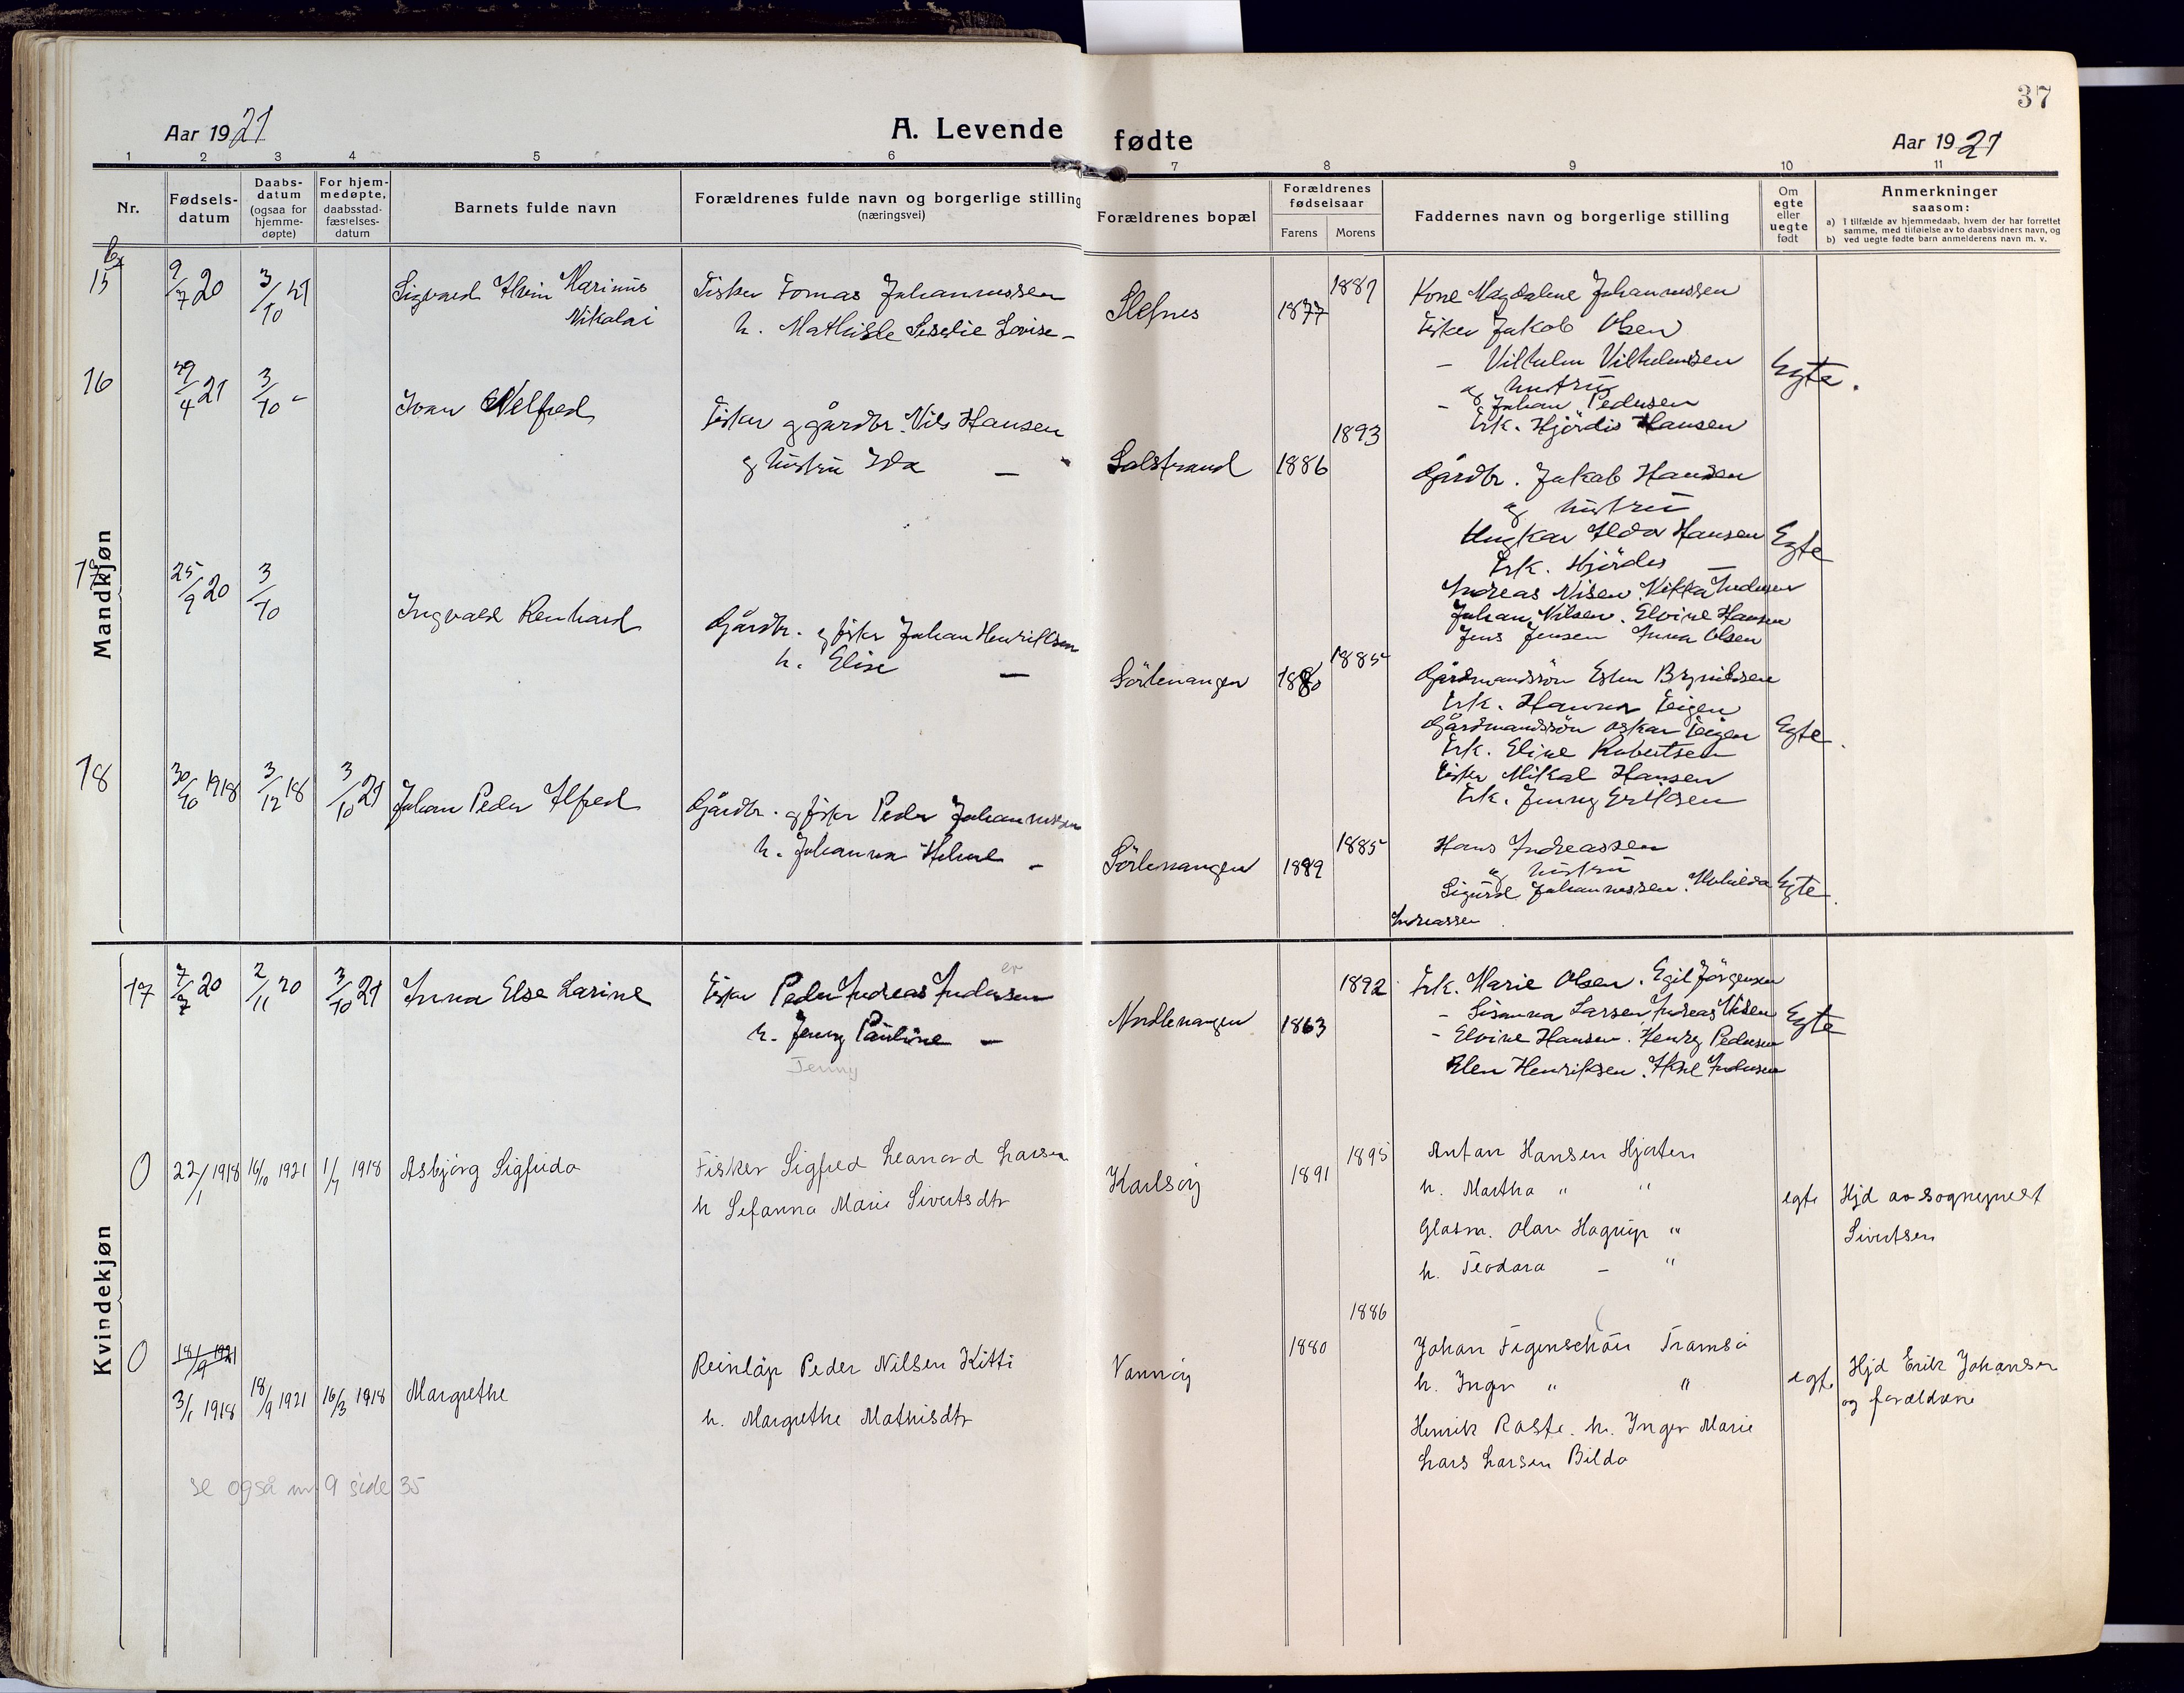 37
Aar 1921
A. Levende fødte
Aar 1921
1 2 3 4 5 6 7 8 9 10 11
Nr.
Fødsels-
datum
Daabs-
datum
(ogsaa for
hjemme-
døpte)
For hjem-
medøpte,
daabsstad-
fæstelses-
datum
Barnets fulde navn
Forældrenes fulde navn og borgerlige stilling
(næringsvei)
Forældrenes bopæl
Forældrenes
fødselsaar
Farens Morens
Faddernes navn og borgerlige stilling
Om
egte
eller
uegte
født
Anmerkninger
saasom:
a) I tilfælde av hjemmedaab, hvem der har forrettet
samme, med tilføielse av to daabsvidners navn, og
b) ved uegte fødte barn anmelderens navn m. v.
Mandkjøn
15
9/7 20
3/10 21
Sigvard Alvin Marinus
Nikolai
Fisker Tomas Johannessen
h. Mathilde Seselie Lovise –
1877
Kone Magdalene Johannessen
Fisker Jakob Olsen
– Vilhelm Vilhelmsen
og hustru
– Johan Pedersen
Frk. Hjördis Hansen
Egte.
16
29/4 21
3/10 –
Ivar Nelfred
Fisker og gårdbr. Nils Hansen
og hustru Ida –
Solstrand
1886
1893
Gårdbr. Jakob Hansen
og hustru
Ungkar Aldor Hansen
Frk. Hjördis –
Andreas Nilsen
Johan Nilsen. Elvine Hansen
Jens Jensen Anna Olsen
Egte
17
25/9 20
3/10
Ingvald Renhard
Gårdbr. og fisker Johan Henriksen
h. Elise –
Sörlenangen
1880
1885
Gårdmandssön
Frk. Hanna Teigen
Gårdmandssön Oskar Teigen
Frk. Eline Robertsen
Fisker Mikal Hansen
Frk. Jenny Eriksen
Egte.
18
30/10 1918
3/12 18
3/10 21
Johan Peder Alfred
Gårdbr. og fisker Peder Johannessen
h. Johanna Helene –
Sörlenangen
1889
1885
Hans Andreassen
og hustru
Sigurd Johannessen.
Andreassen.
Egte.
Kvindekjøn
17
7/7 20
2/11 20
3/10 21
Anna Else Larine
er
Fisker Peder Andreas Andersen
h. Jenny Pauline –
Jenny
Nordlenangen
1863
1892
Frk. Marie Olsen. Egil Jörgensen
– Susanna Larsen Andreas Nilsen
– Elvine Hansen. Henry Pedersen
Elen Henriksen. Aksel Andersen
Egte
0
22/1 1918
16/10 1921
1/7 1918
Asbjörg Sigfrida
Fisker Sigfred Leonard Larsen
h Sefanna Marie Sivertsdtr
Karlsöy
1891
1895
Anton Hansen Hjorten
h. Martha " "
Glasm. Olav Hagrup "
h. Teodora – "
egte
Hjd av sogneprest
Sivertsen
0
18/9 1921
3/1 1918
18/9 1921
16/3 1918
Margrethe
Reinlap Peder Nilsen Kitti
h. Margrethe Mathisdtr
Vannöy
1880
1886
Johan Figenschou Tromsö
h. Inger " "
Henrik Raste. h. Inger Marie
Lars Larsen Bildo
egte
Hjd Erik Johansen
og forældrene
se også nr 9 side 35